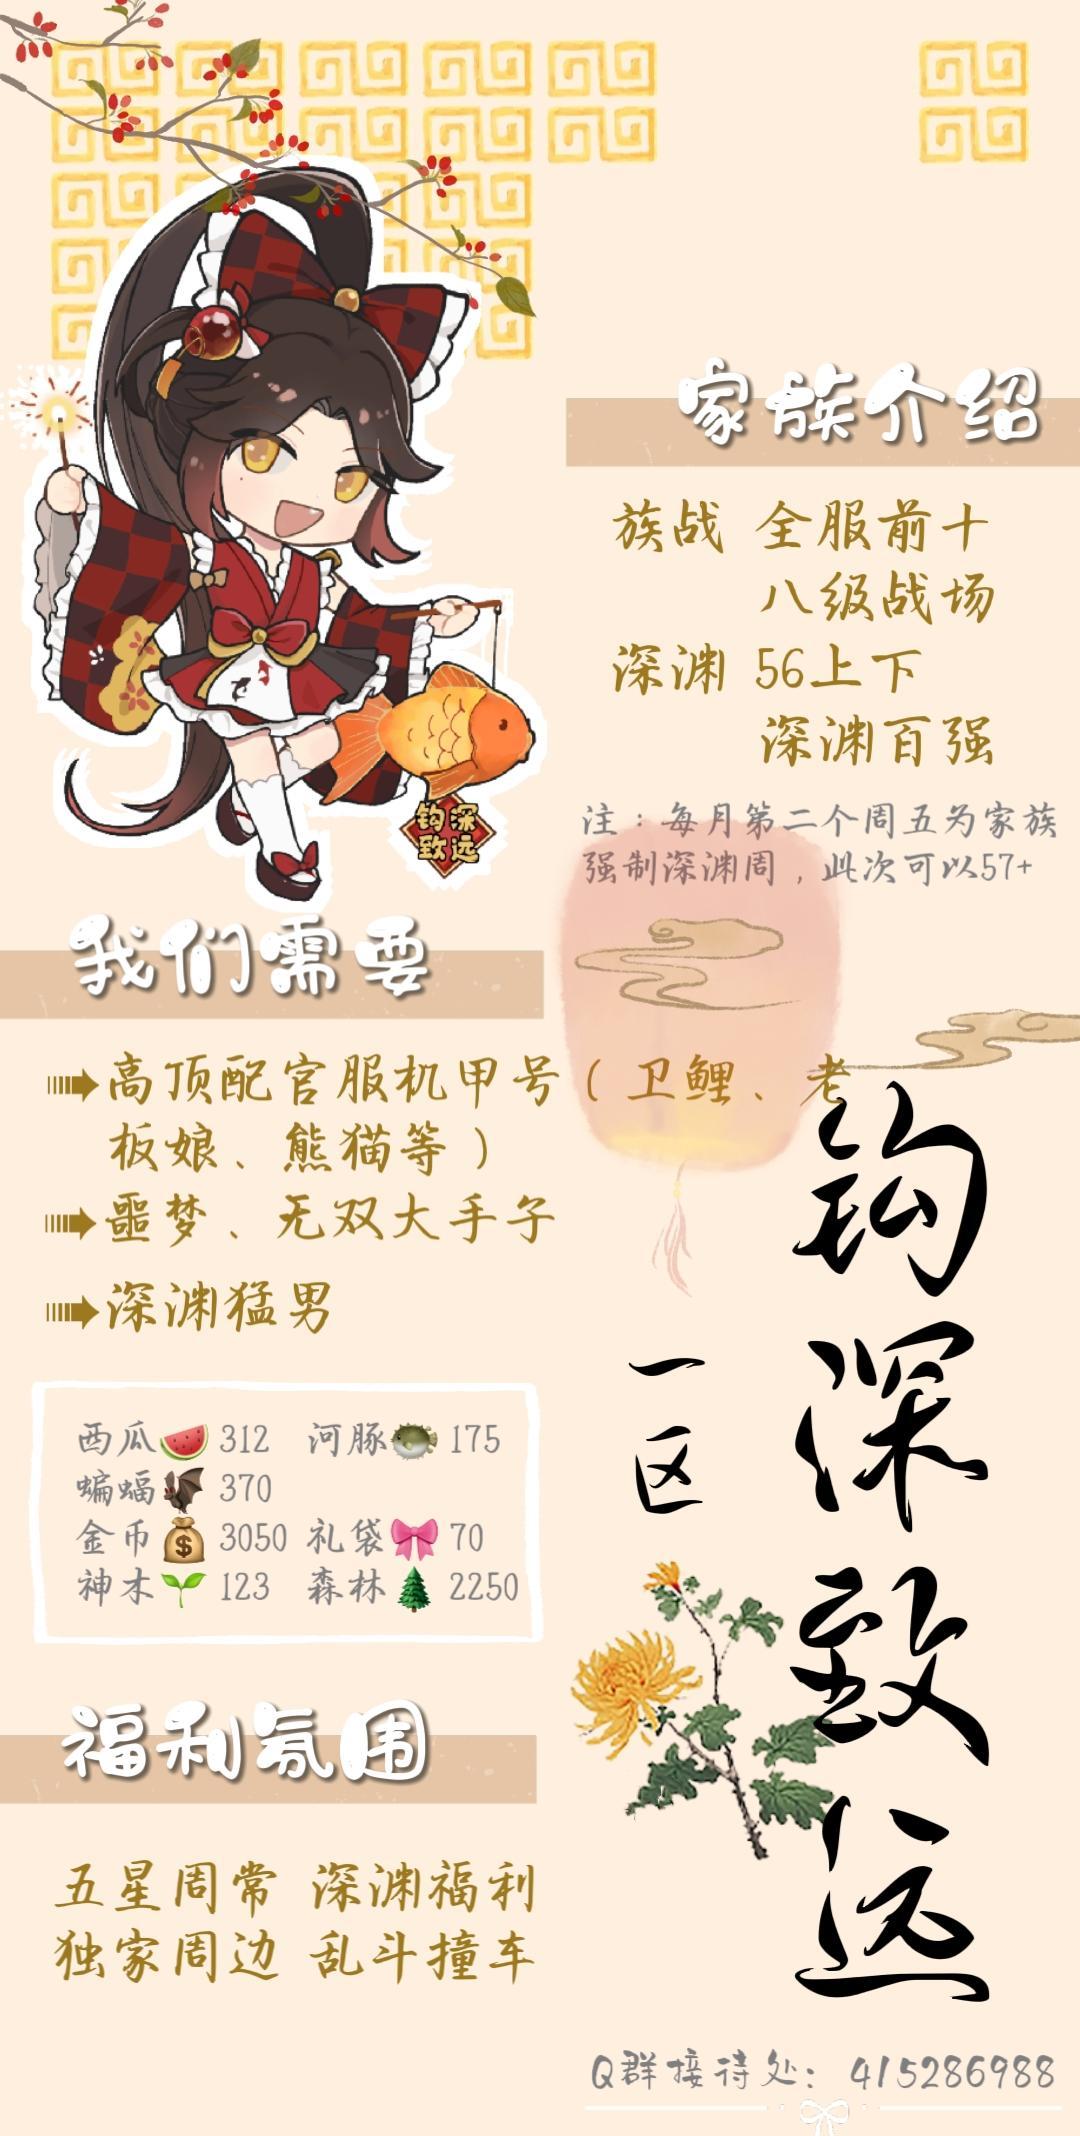 家族介绍
族战 全服前十
八级战场
深渊 56上下
深渊百强
注：每月第二个周五为家族
强制深渊周，此次可以57+
钩深
致远
我们需要
高顶配官服机甲号（卫鲤、老
板娘、熊猫等）
噩梦、无双大手子
深渊猛男
西瓜🍉312 河豚🐡175
蝙蝠🦇370
金币💰3050 礼袋🎀70
神木🌱123 森林🌲2250
福利氛围
五星周常 深渊福利
独家周边 乱斗撞车
一区
钩深致远
Q群接待处：415286988